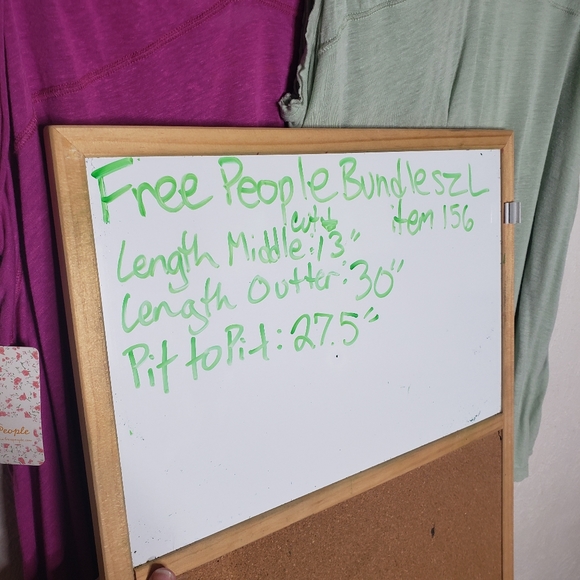 Free People Bundle sz L
item 156
Length Middle: 13"
Length Outter: 30"
Pit to Pit: 27.5"
People